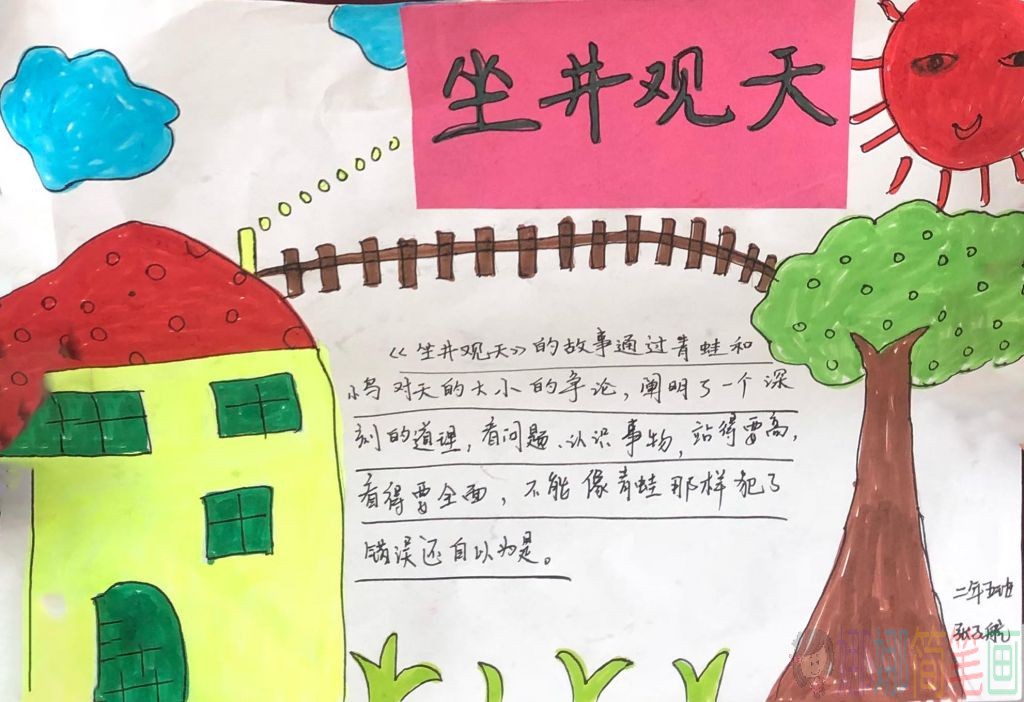 坐井观天
《坐井观天》的故事通过青蛙和
小鸟对天的大小的争论，阐明了一个深
刻的道理，看问题、认识事物，站得要高，
看得要全面，不能像青蛙那样犯了
错误还自以为是。
二年五班
简笔画